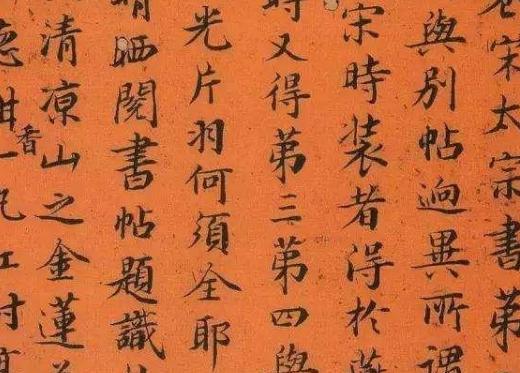 宋太宗書第
與別帖逈異所謂
宋時装者得於
時又得第三第四與
光片羽何須全耶
晴晒閱書帖題識
清凉山之金蓮
香一